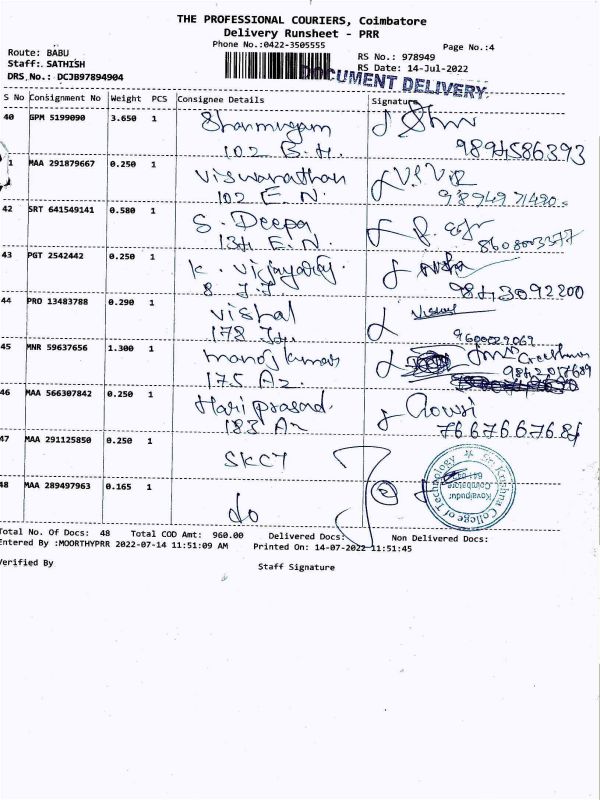 THE PROFESSIONAL COURIERS, Coimbatore
Delivery Runsheet - PRR
Phone No.:0422-3505555
Page No.:4
Route: BABU
RS No.: 978949
Staff: SATHISH
RS Date: 14-Jul-2022
DRS No.: DCJB97894904
DOCUMENT DELIVERY
S No Consignment No Weight PCS Consignee Details Signature
40 GPM 5199090 3.650 1 Shanmugam
102 B.H. 9894586393
1 MAA 291879667 0.250 1 Viswanathan
102 E.N.
42 SRT 641549141 0.580 1 S. Deepa
134 E.N. 8608003377
43 PGT 2542442 0.250 1 K. Vijayaraj
8 J.J 9843092200
44 PRO 13483788 0.290 1 Vishal Vishal
178 9600027069
45 MNR 59637656 1.300 1 Manoj Kumar
175 Az.
46 MAA 566307842 0.250 1 Hari prasad. Gowri
183 Az
47 MAA 291125850 0.250 1 SKCT
48 MAA 289497963 0.165 1 do 2
Sri Krishna College of Technology
Kovaipudur
Coimbatore
641 042
Total No. Of Docs: 48 Total COD Amt: 960.00 Delivered Docs: Non Delivered Docs:
Entered By :MOORTHYPRR 2022-07-14 11:51:09 AM Printed On: 14-07-2022 11:51:45
Verified By
Staff Signature